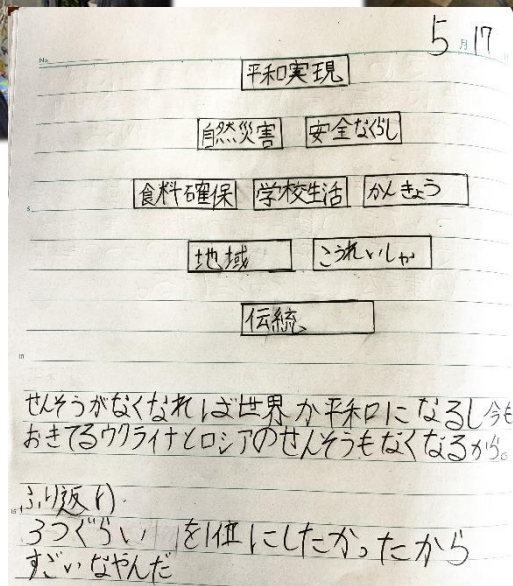 5月17
No.
平和実現
自然災害 安全なくらし
食料確保 学校生活 かんきょう
5
地域 こうれいしゃ
伝統
10
せんそうがなくなれば世界が平和になるし今も
おきてるウクライナとロシアのせんそうもなくなるから。
15
ふり返り
3つぐらい1を1位にしたかったから
すごいなやんだ